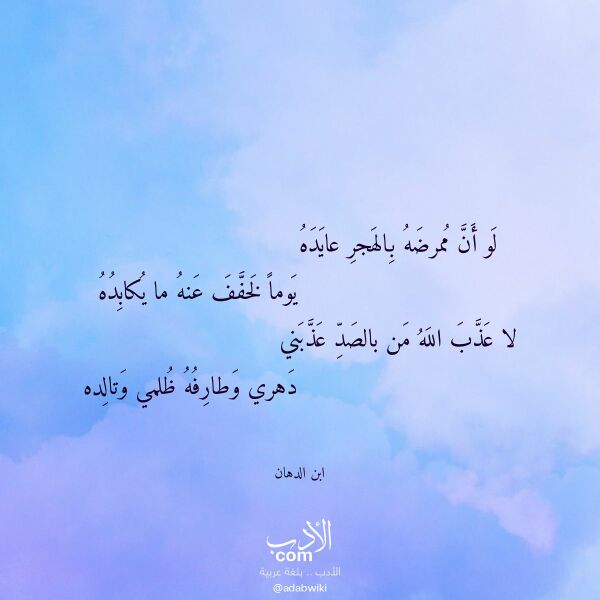 لَو أَنَّ مُمرضَهُ بِالهَجرِ عايَدَهُ
يَوماً لَخَفَّفَ عَنهُ ما يُكابِدُهُ
لا عَذَّبَ اللَهُ مَن بالصَدِّ عَذَّبَني
دَهري وَطارِفُهُ ظُلمي وَتالِده
ابن الدهان
الأدب
com
الأدب .. بلغة عربية
@adabwiki